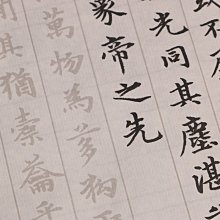 不
光同其塵湛
象帝之先
萬物為芻狗
間其猶橐籥乎